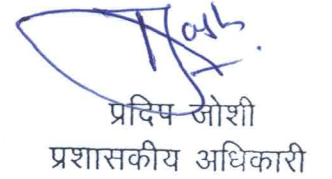 प्रदिप जोशी
प्रशासकीय अधिकारी